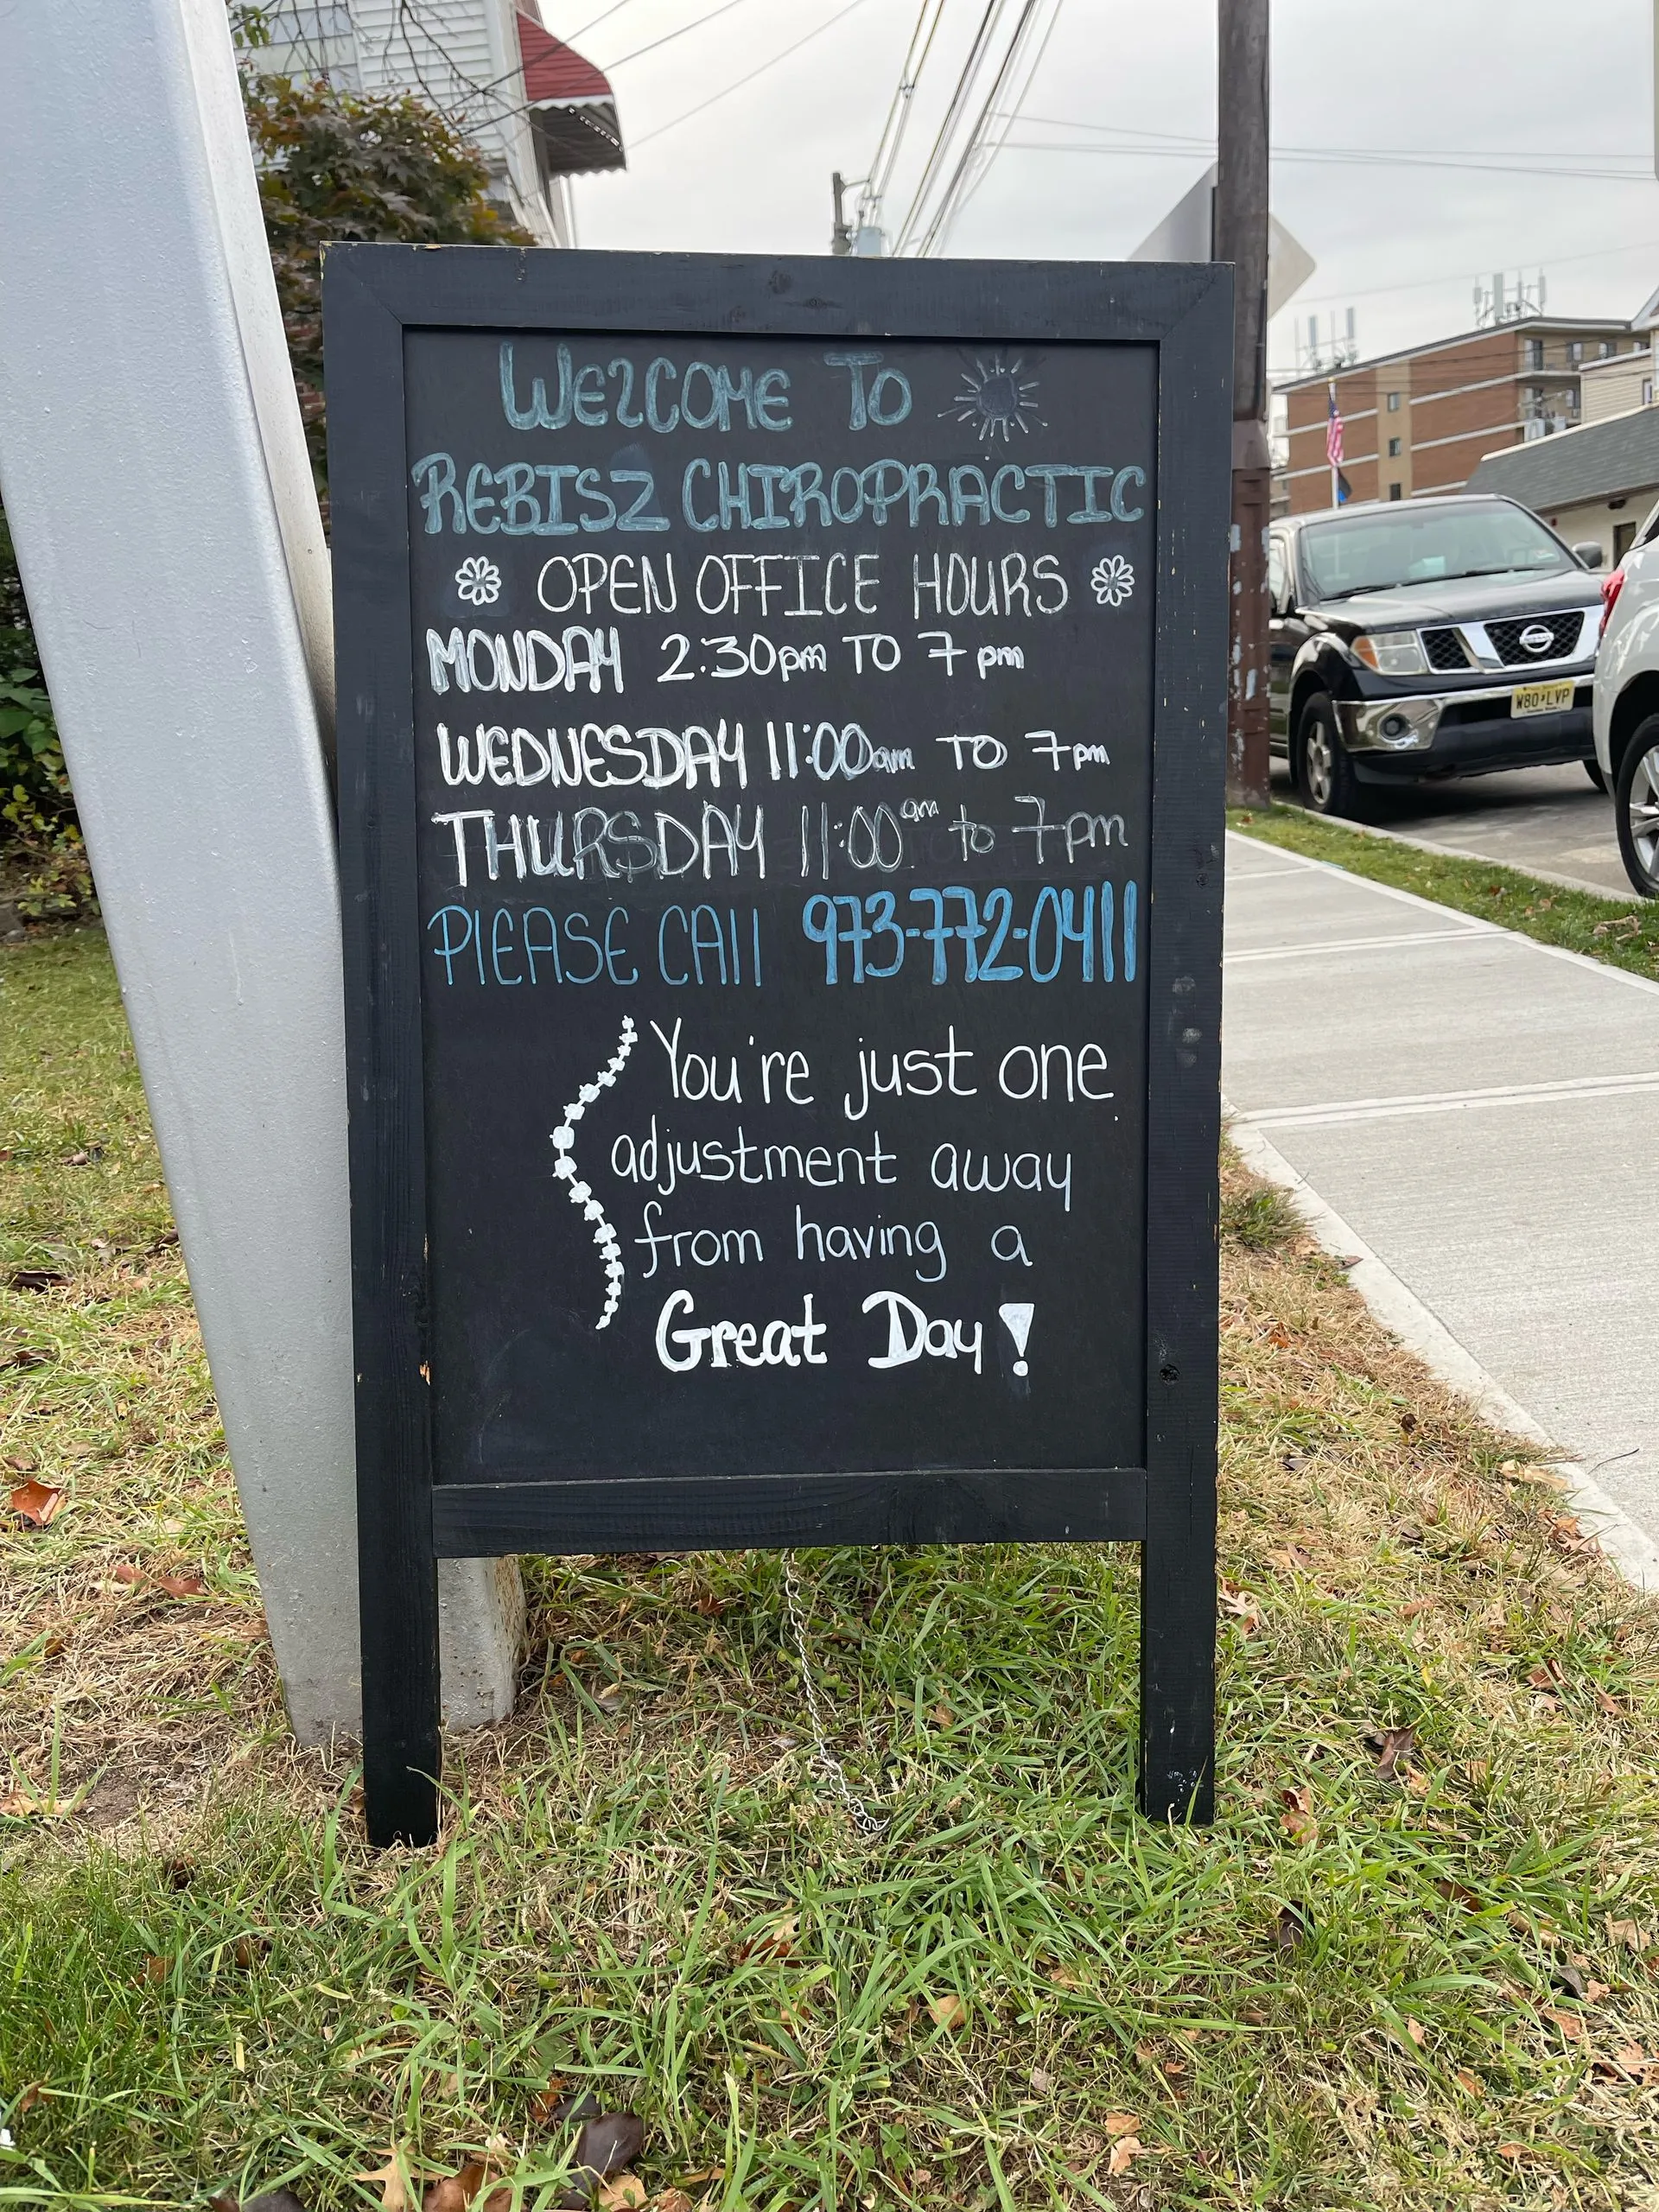 WELCOME TO
REBISZ CHIROPRACTIC
OPEN OFFICE HOURS
MONDAY 2:30pm TO 7 pm
WEDNESDAY 11:00am TO 7pm
THURSDAY 11:00am to 7pm
PlEASE CAll 973-772-0411
You're just one
adjustment away
from having a
Great Day!
W80 LVP